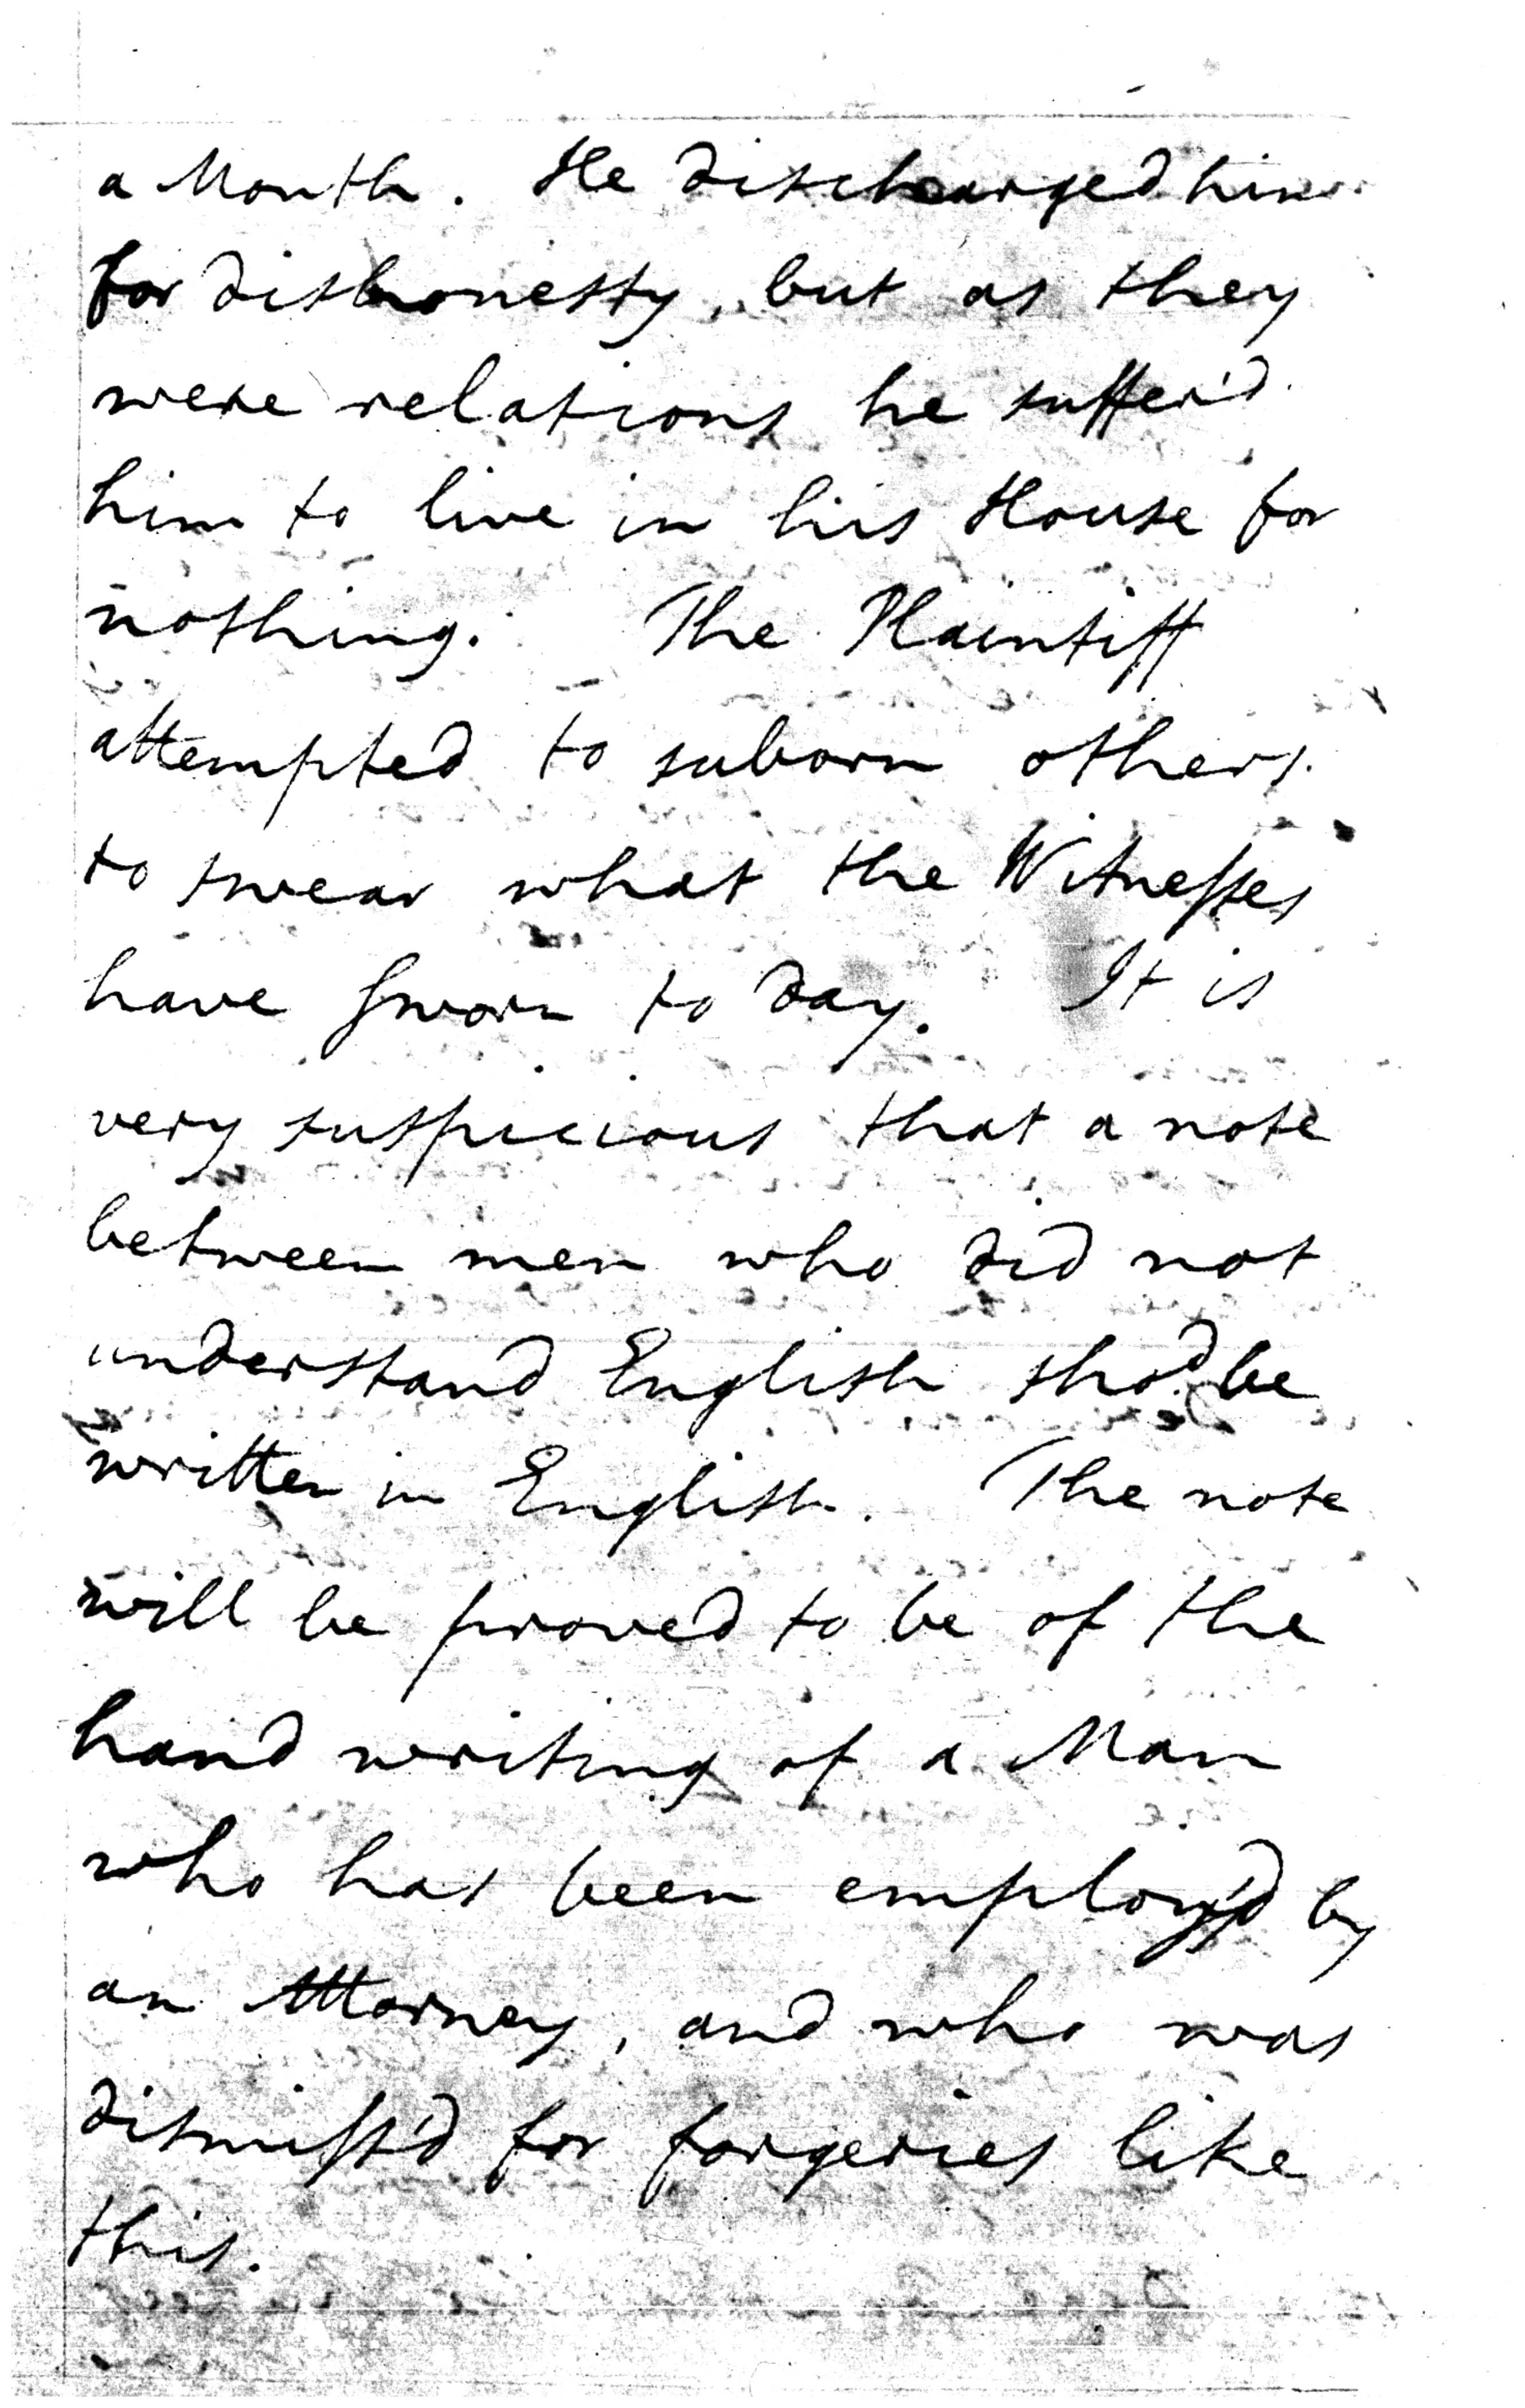 a Month. He discharged him
for dishonesty, but as they
were relations he suffer'd
him to live in his House for
nothing. The Plaintiff
attempted to suborn others
to swear what the Witneſses
have Sworn to day. It is
very suspicious that a note
between men who did not
understand English sho.d be
written in English. The note
will be proved to be of the
hand writing of a Man
who has been employ'd by
an Attorney, and who was
dismiſs'd for forgeries like
this.